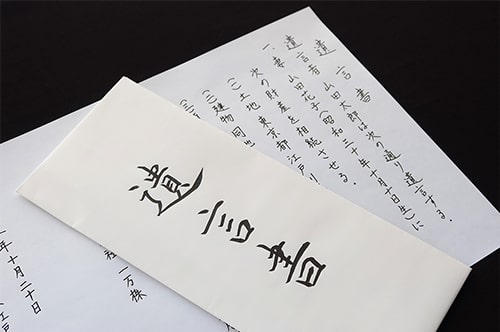 遺言書
遺言者 山田太郎は次の通り遺言する。
一、妻 山田花子(昭和三十年十月十日生)に
次の財産を相続させる。
(一)土地 東京都江戸
(二)建物 同
(三)
一万株
年十月二十日
江戸
遺言書